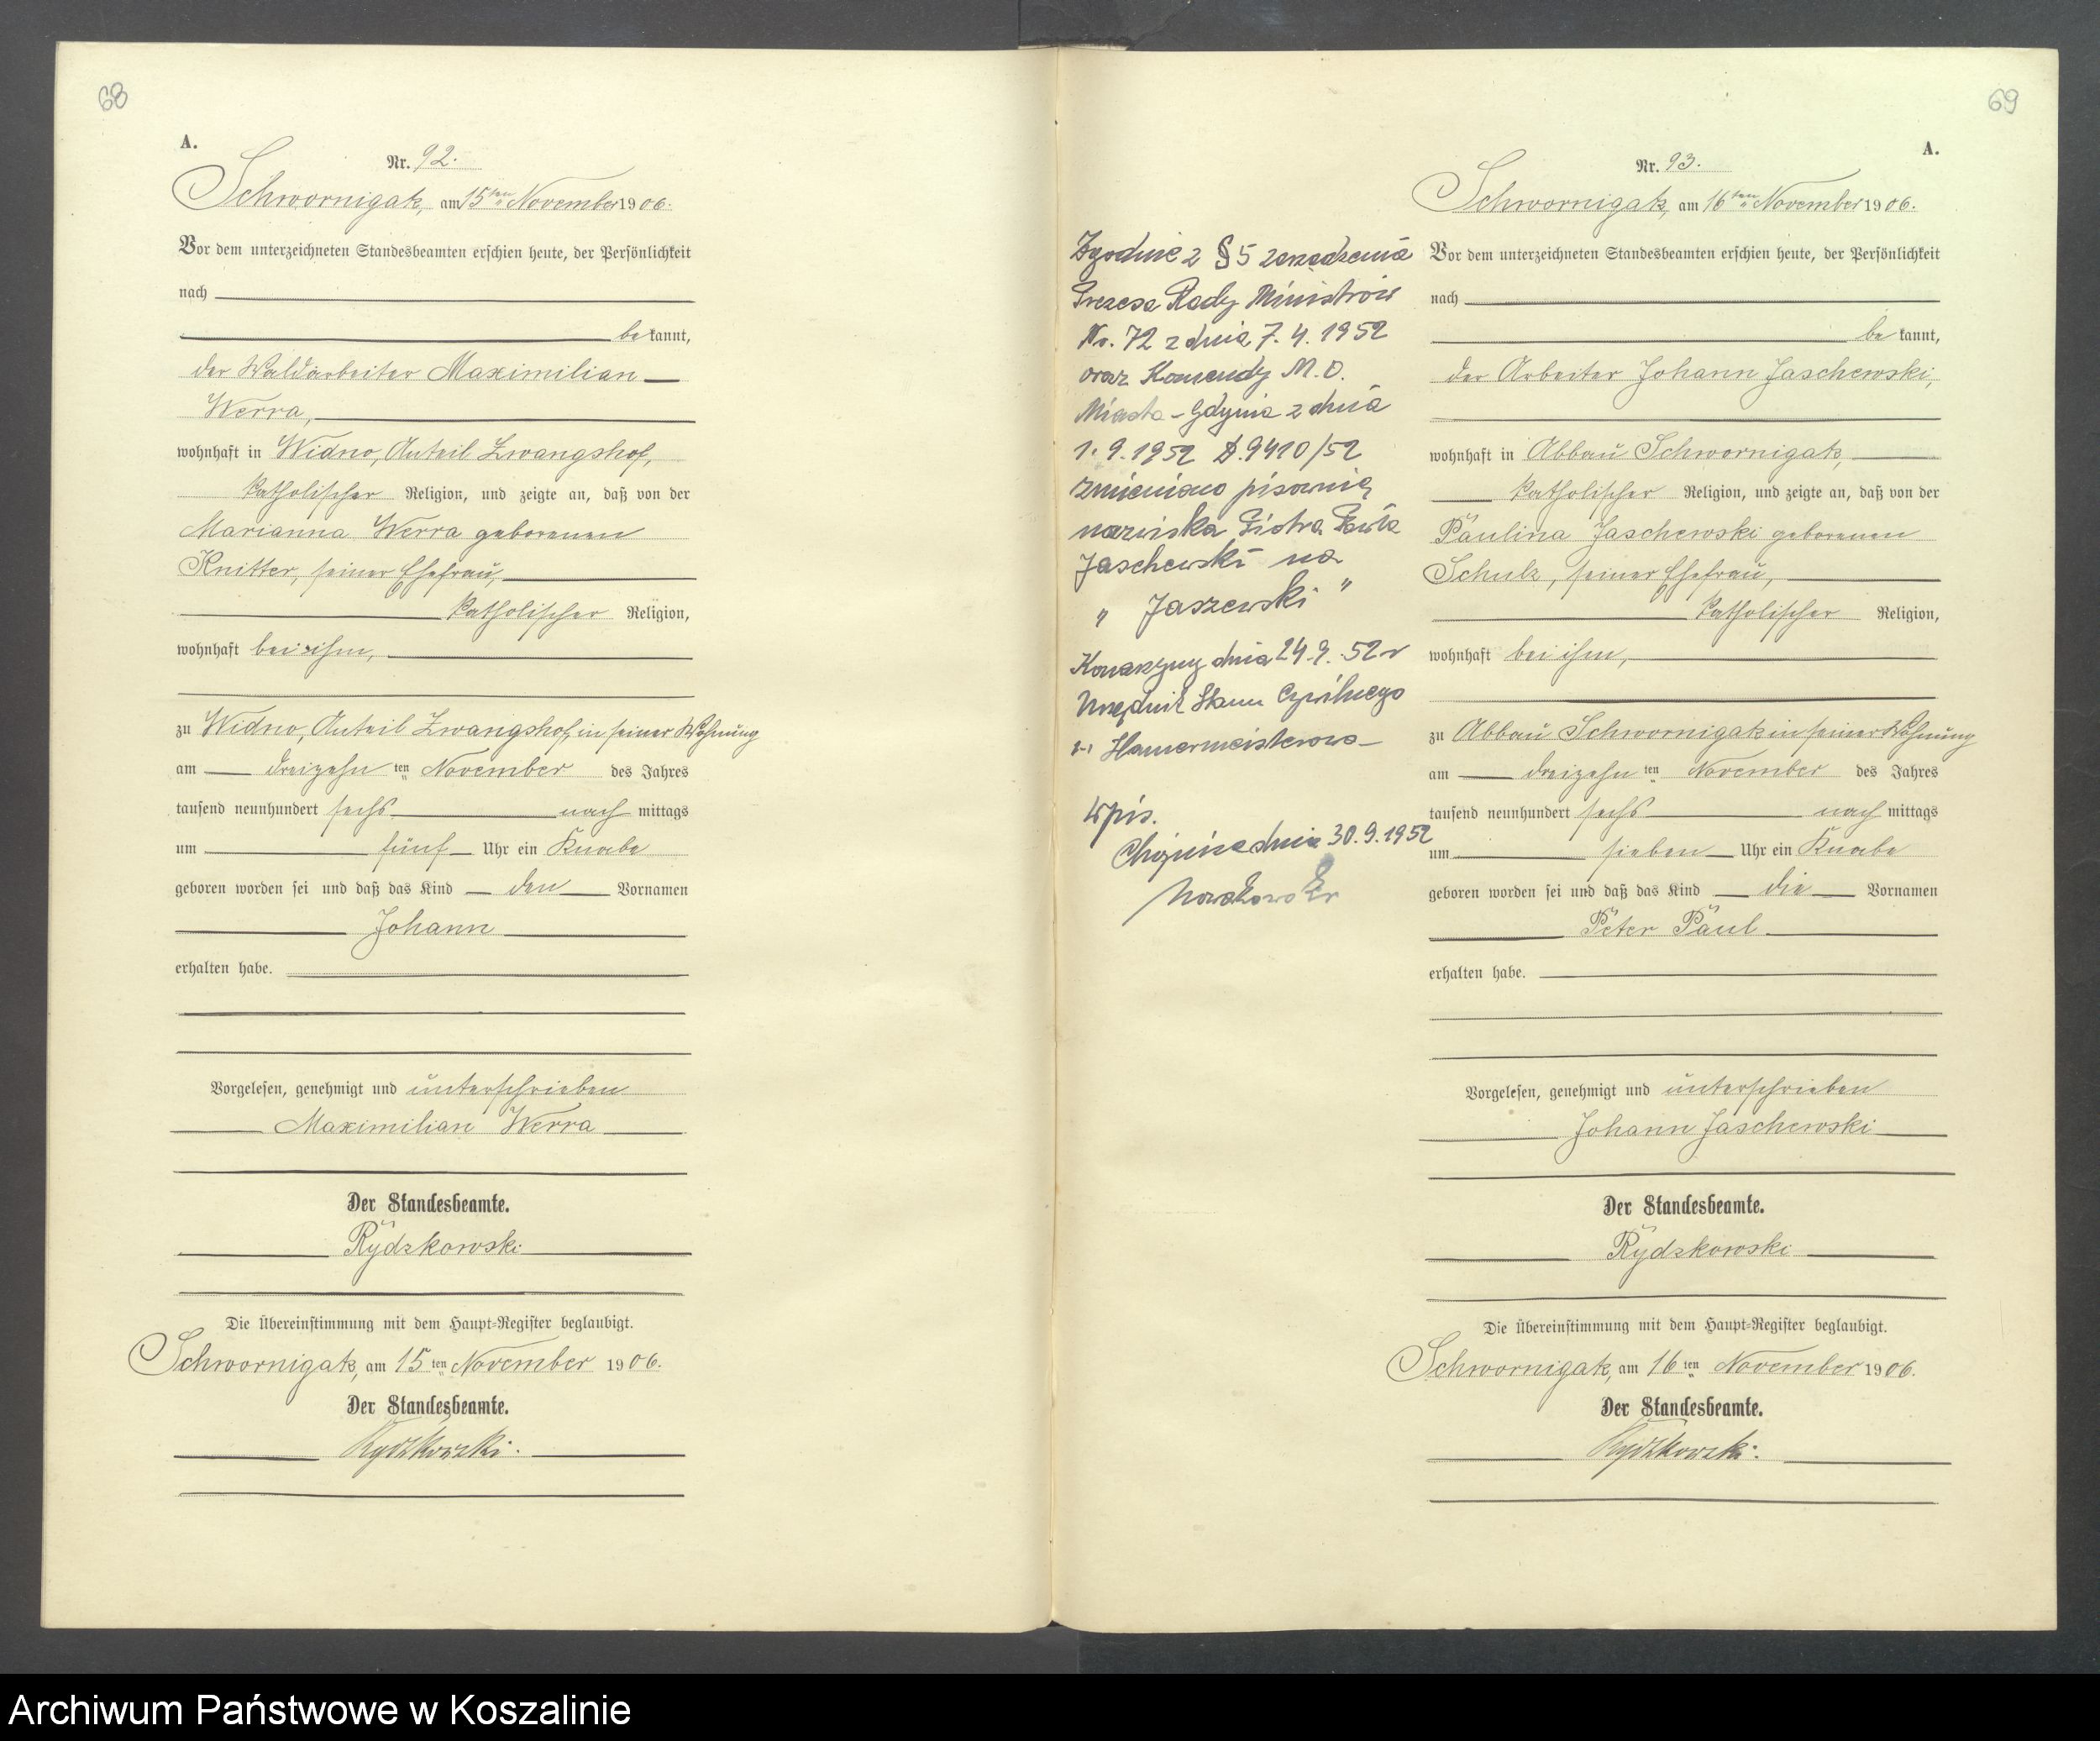 68
A.
Nr. 92.
Schwornigatz, am 15ten November 1906.
Vor dem unterzeichneten Standesbeamten erschien heute, der Persönlichkeit
nach
be kannt,
der Waldarbeiter Maximilian
Werra,
wohnhaft in Widno, Anteil Zwangshof,
katholischer Religion, und zeigte an, daß von der
Marianna Werra geborenen
Knitter, seiner Ehefrau,
katholischer Religion,
wohnhaft bei ihm,
zu Widno, Anteil Zwangshof, in seiner Wohnung
am dreizehn ten November des Jahres
tausend neunhundert sechs nach mittags
um fünf Uhr ein Knabe
geboren worden sei und daß das Kind den Vornamen
Johann
erhalten habe.
Vorgelesen, genehmigt und unterschrieben
Maximilian Werra
Der Standesbeamte.
Rydzkowski
Die Übereinstimmung mit dem Haupt-Register beglaubigt.
Schwornigatz, am 15 ten November 1906.
Der Standesbeamte.
Rydzkowski.
69
A.
Nr. 93.
Schwornigatz, am 16ten November 1906.
Vor dem unterzeichneten Standesbeamten erschien heute, der Persönlichkeit
nach
be kannt,
der Arbeiter Johann Jaschewski,
wohnhaft in Abbau Schwornigatz,
katholischer Religion, und zeigte an, daß von der
Paulina Jaschewski geborenen
Schulz, seiner Ehefrau,
katholischer Religion,
wohnhaft bei ihm,
zu Abbau Schwornigatz in seiner Wohnung
am dreizehn ten November des Jahres
tausend neunhundert sechs nach mittags
um sieben Uhr ein Knabe
geboren worden sei und daß das Kind die Vornamen
Peter Paul
erhalten habe.
Vorgelesen, genehmigt und unterschrieben
Johann Jaschewski
Der Standesbeamte.
Rydzkowski
Die Übereinstimmung mit dem Haupt-Register beglaubigt.
Schwornigatz, am 16 ten November 1906.
Der Standesbeamte.
Rydzkowski.
Zgodnie z § 5 zarządzenia
Prezesa Rady Ministrów
Nr. 72 z dnia 7.4.1952
oraz Komendy M.O.
Miasta - Gdynia z dnia
1.9.1952 D.9410/52
zmieniano pisownię
nazwiska Piotra Pawła
Jaschewski na
" Jaszewski "
Konarzyny dnia 24.9.52 r
Urzędnik Stanu Cywilnego
/-/ Hamermeisterowa
Wpis.
Chojnice dnia 30.9.1952
Archiwum Państwowe w Koszalinie